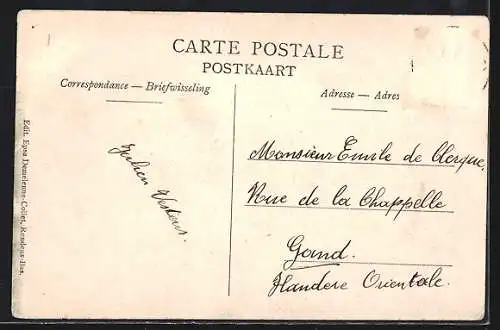 CARTE POSTALE
POSTKAART
Correspondance — Briefwisseling
Adresse — Adres
Edit. Epou Demelenne-Collet, Rendeux-Bas.
Monsieur Emile de Clerque.
Rue de la Chappelle
Gand.
Flandere Orientale.